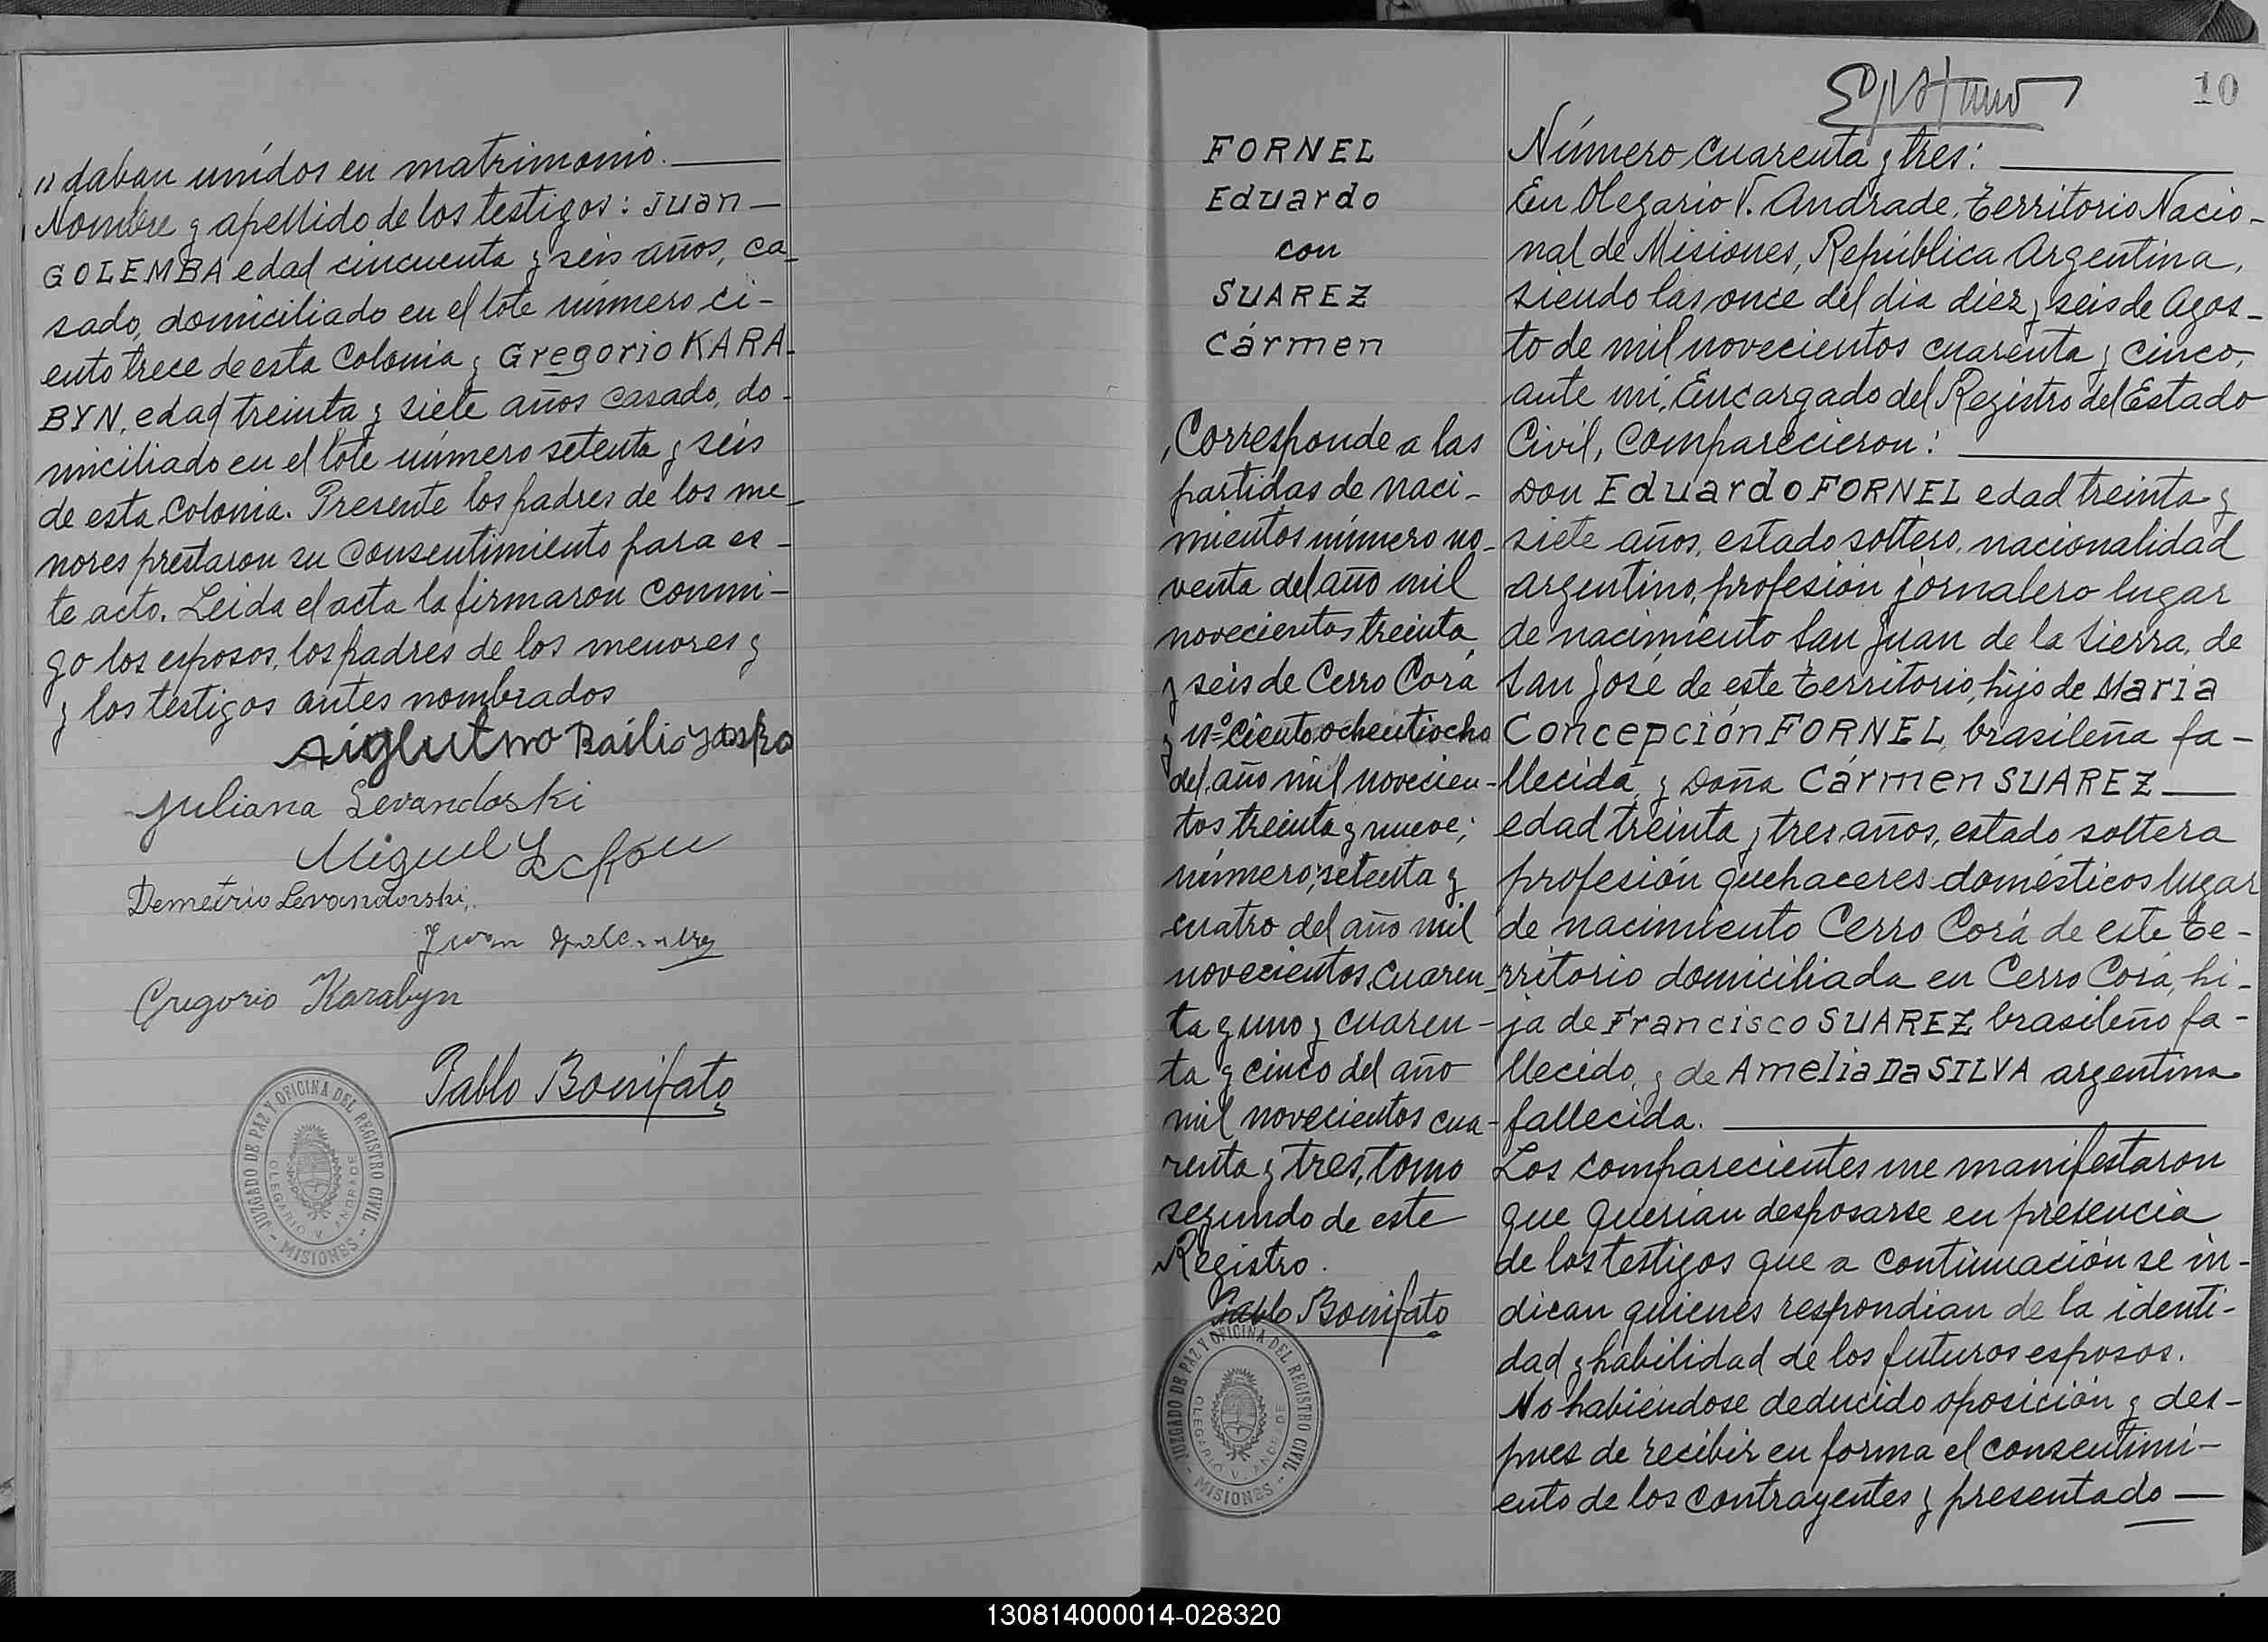 " daban unidos en matrimonio.
Nombre y apellido de los testigos: Juan
GOLEMBA edad cincuenta y seis años, ca-
sado, domiciliado en el lote número ci-
ento trece de esta Colonia y Gregorio KARA-
BYN, edad treinta y siete años casado, do-
miciliado en el lote número setenta y seis
de esta Colonia. Presente los padres de los me-
nores prestaron su consentimiento para es-
te acto. Leida el acta la firmaron conmi-
go los esposos, los padres de los menores y
y los testigos antes nombrados
Juliana Levandoski
Miguel
Demetrio Levandovski
Gregorio Karabyn
Pablo Bonifato
JUZGADO DE PAZ Y OFICINA DEL REGISTRO CIVIL
OLEGARIO V. ANDRADE
- MISIONES -
10
FORNEL
Eduardo
con
SUAREZ
Cármen
Corresponde a las
partidas de naci-
mientos número no-
venta del año mil
novecientos treinta
y seis de Cerro Corá
y nº ciento ochentiocho
del año mil novecien-
tos treinta y nueve;
número setenta y
cuatro del año mil
novecientos cuaren-
ta y uno y cuaren-
ta y cinco del año
mil novecientos cua-
renta y tres, tomo
segundo de este
Registro.
Pablo Bonifato
JUZGADO DE PAZ Y OFICINA DEL REGISTRO CIVIL
OLEGARIO V. ANDRADE
- MISIONES -
Número cuarenta y tres:
En Olegario V. Andrade, Territorio Nacio-
nal de Misiones, República Argentina,
siendo las once del dia diez y seis de Agos-
to de mil novecientos cuarenta y cinco,
ante mí, Encargado del Registro del Estado
Civil, comparecieron:
Don Eduardo FORNEL edad treinta y
siete años, estado soltero, nacionalidad
argentino, profesión jornalero lugar
de nacimiento San Juan de la Sierra, de
San José de este Territorio, hijo de María
Concepción FORNEL, brasileña fa-
llecida, y Doña Cármen SUAREZ
edad treinta y tres años, estado soltera
profesión quehaceres domésticos lugar
de nacimiento Cerro Corá de este te-
rritorio domiciliada en Cerro Corá, hi-
ja de Francisco SUAREZ brasileño fa-
llecido, y de Amelia Da SILVA argentina
fallecida.
Los comparecientes me manifestaron
que querían desposarse en presencia
de los testigos que a continuación se in-
dican quienes respondian de la identi-
dad y habilidad de los futuros esposos.
No habiéndose deducido oposición y des-
pues de recibir en forma el consentimi-
ento de los contrayentes y presentado
130814000014-028320